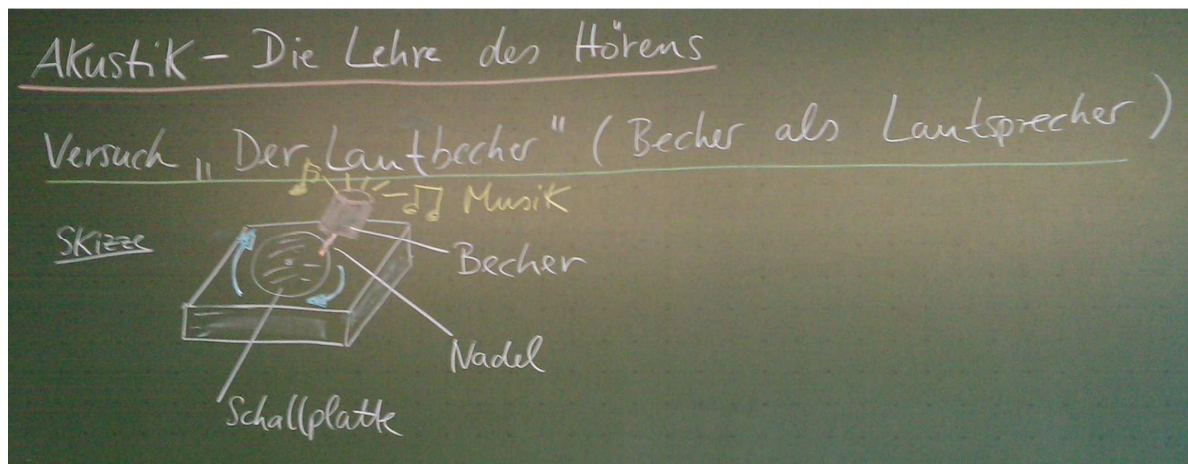 Akustik - Die Lehre des Hörens
Versuch „Der Lautbecher" (Becher als Lautsprecher)
Musik
Skizze
Becher
Nadel
Schallplatte